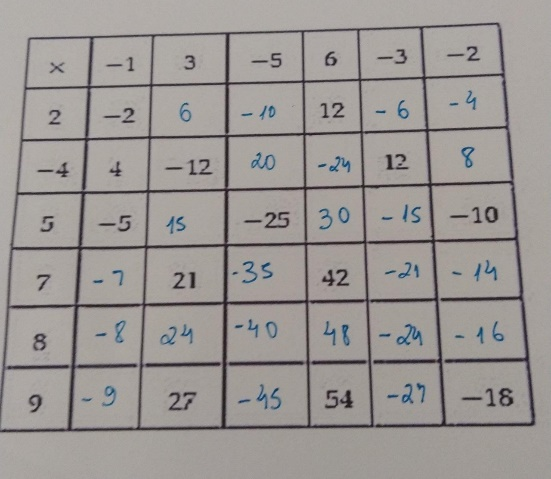 × −1 3 −5 6 −3 −2
2 −2 6 -10 12 -6 -4
−4 4 −12 20 -24 12 8
5 −5 15 −25 30 -15 −10
7 -7 21 -35 42 -21 -14
8 -8 24 -40 48 -24 -16
9 -9 27 -45 54 -27 −18